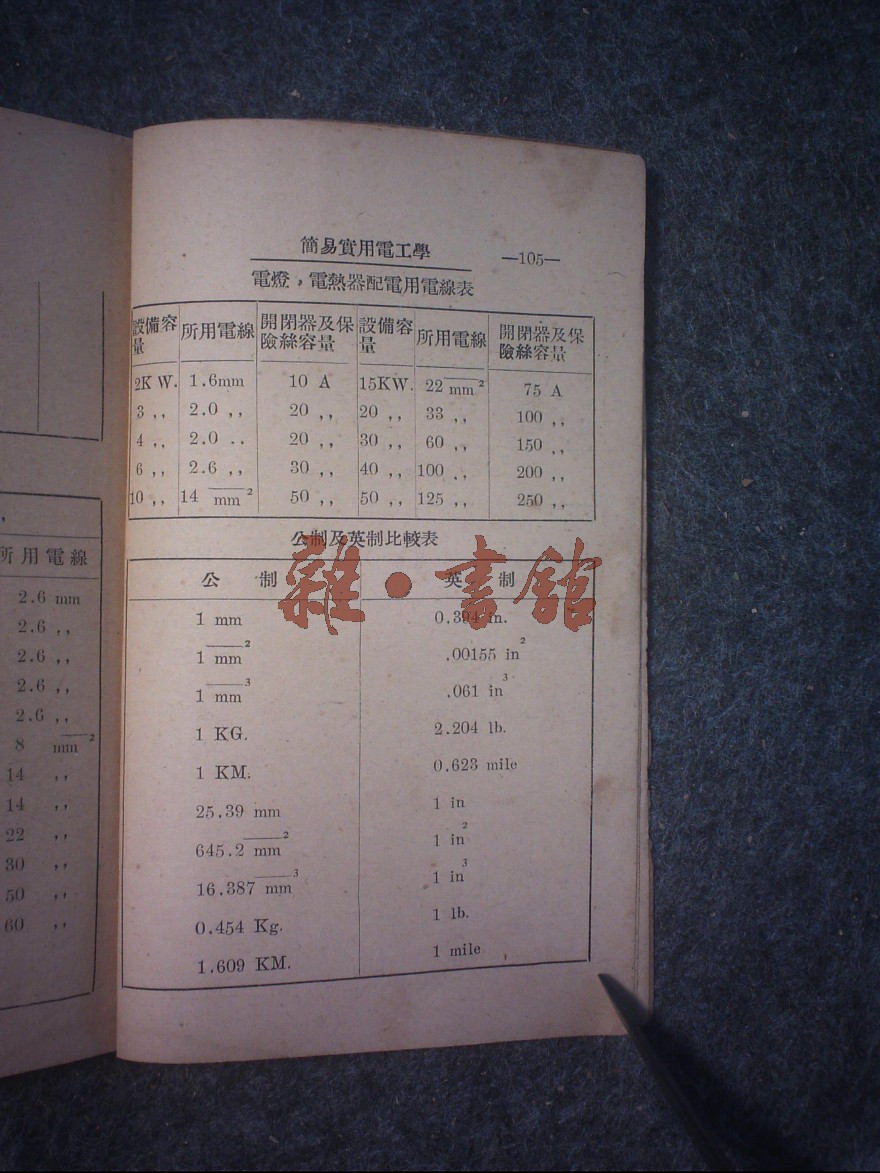 簡易實用電工學 —105—
電燈，電熱器配電用電線表
設備容量 所用電線 開閉器及保險絲容量 設備容量 所用電線 開閉器及保險絲容量
2K W. 1.6mm 10 A 15KW. 22 mm² 75 A
3 ,, 2.0 ,, 20 ,, 20 ,, 33 ,, 100 ,,
4 ,, 2.0 .. 20 ,, 30 ,, 60 ,, 150 ,,
6 ,, 2.6 ,, 30 ,, 40 ,, 100 ,, 200 ,,
10 ,, 14 mm² 50 ,, 50 ,, 125 ,, 250 ,,
公制及英制比較表
公 制 英 制
1 mm 0.394 in.
1 mm² .00155 in²
1 mm³ .061 in³
1 KG. 2.204 lb.
1 KM. 0.623 mile
25.39 mm 1 in
645.2 mm² 1 in²
16.387 mm³ 1 in³
0.454 Kg. 1 lb.
1.609 KM. 1 mile
雜·書館
所用電線
2.6 mm
2.6 ,,
2.6 ,,
2.6 ,,
2.6 ,,
8 mm²
14 ,,
14 ,,
22 ,,
30 ,,
50 ,,
60 ,,